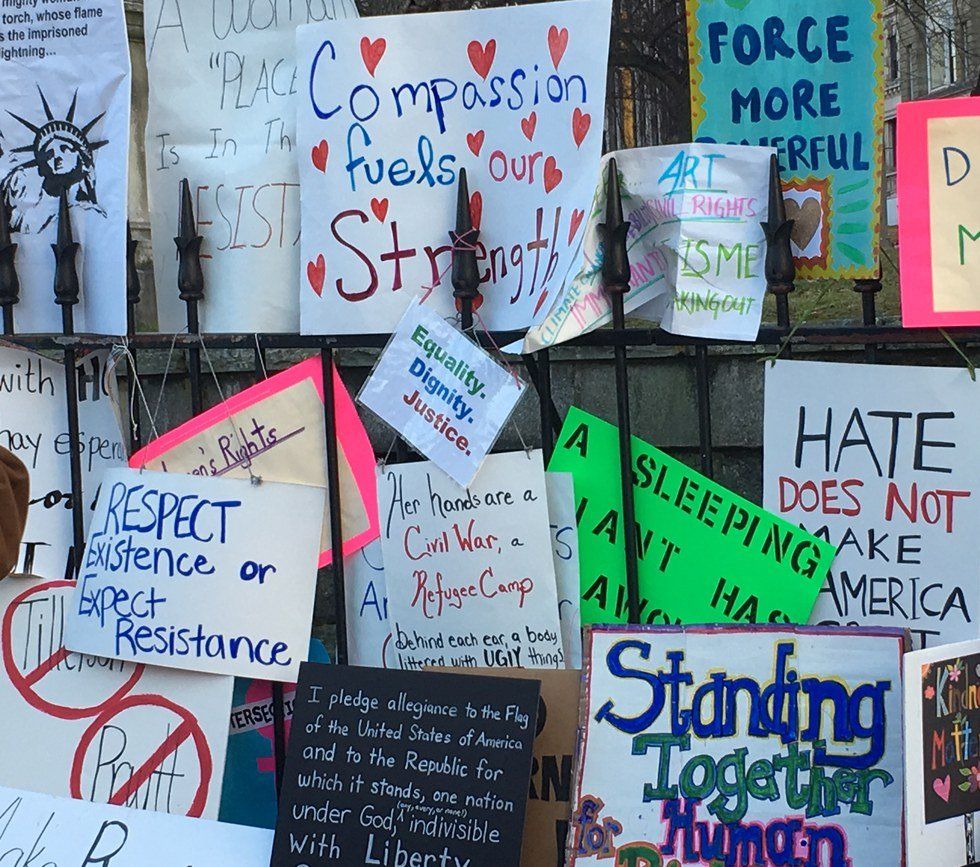 mighty wom
torch, whose flame
s the imprisoned
ightning...
A Woman
"PLACE
Is In Th
ESIST
Compassion
fuels our
Strength
FORCE
MORE
ERFUL
ART
CIVIL RIGHTS
IS ME
AKING OUT
D
M
Equality.
Dignity.
Justice.
with
en's Rights
RESPECT
Existence or
Expect
Resistance
Her hands are a
Civil War, a
Refugee Camp
behind each ear, a body
littered with UGLY things
A SLEEPING
IANT HAS
AWO
HATE
DOES NOT
MAKE
AMERICA
Tillerson
Pruitt
TERSECTI
I pledge allegiance to the Flag
of the United States of America
and to the Republic for
which it stands, one nation
(any, every, or none!)
under God, ^ indivisible
with Liberty
Standing
Together
for Human
Kind
Matt